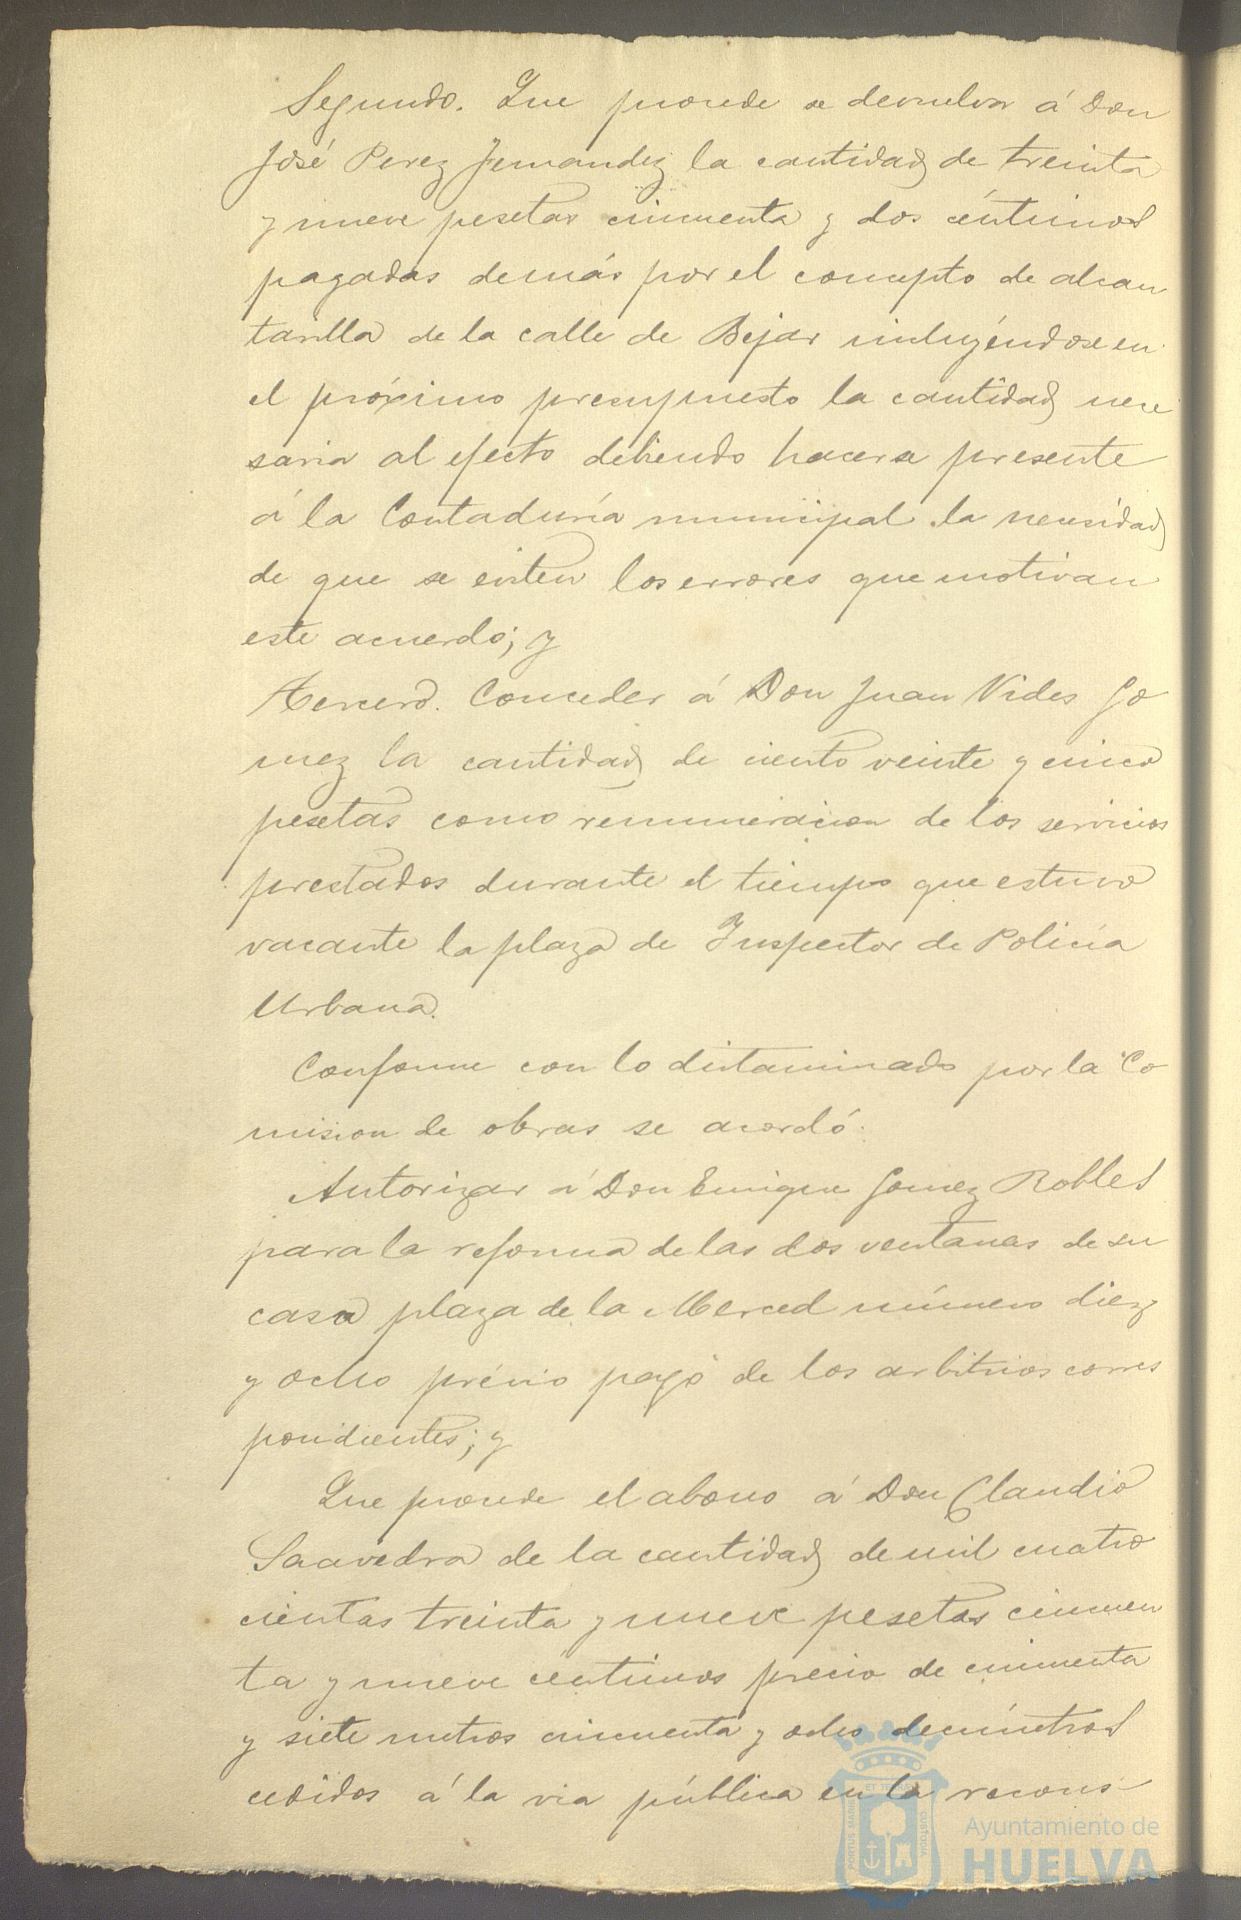 Segundo. Que procede se devuelva á Don
José Perez Fernandez la cantidad de treinta
y nueve pesetas cincuenta y dos céntimos
pagadas demás por el concepto de alcan
tarilla de la calle de Bejar incluyéndose en
el próximo presupuesto la cantidad nece
saria al efecto debiendo hacerse presente
á la Contaduría municipal la necesidad
de que se eviten los errores que motivan
este acuerdo; y
Tercero. Conceder á Don Juan Vides Go
mez la cantidad de ciento veinte y cinco
pesetas como remuneracion de los servicios
prestados durante el tiempo que estuvo
vacante la plaza de Inspector de Policía
Urbana.
Conforme con lo dictaminado por la Co
mision de obras se acordó:
Autorizar á Don Enrique Gomez Robles
para la reforma de las dos ventanas de su
casa plaza de la Merced número diez
y ocho prévio pago de los arbitrios corres
pondientes; y
Que procede el abono á Don Claudio
Saavedra de la cantidad de mil cuatro
cientas treinta y nueve pesetas cincuen
ta y nueve céntimos precio de cincuenta
y siete metros cincuenta y ocho decímetros
cedidos á la via pública en la recons
Ayuntamiento de
HUELVA